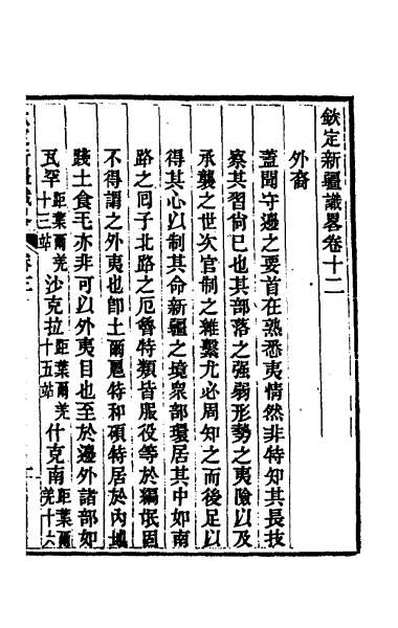 欽定新疆識畧卷十二
外裔
蓋聞守邊之要首在熟悉夷情然非特知其長技
察其習尚已也其部落之强弱形勢之夷險以及
承襲之世次官制之雜繫尤必周知之而後足以
得其心以制其命新疆之境衆部環居其中如南
路之回子北路之厄魯特類皆服役等於編氓固
不得謂之外夷也卽土爾扈特和碩特居於內域
踐土食毛亦非可以外夷目也至於邊外諸部如
瓦罕距葉爾羌十三站沙克拉距葉爾羌十五站什克南距葉爾羌十六